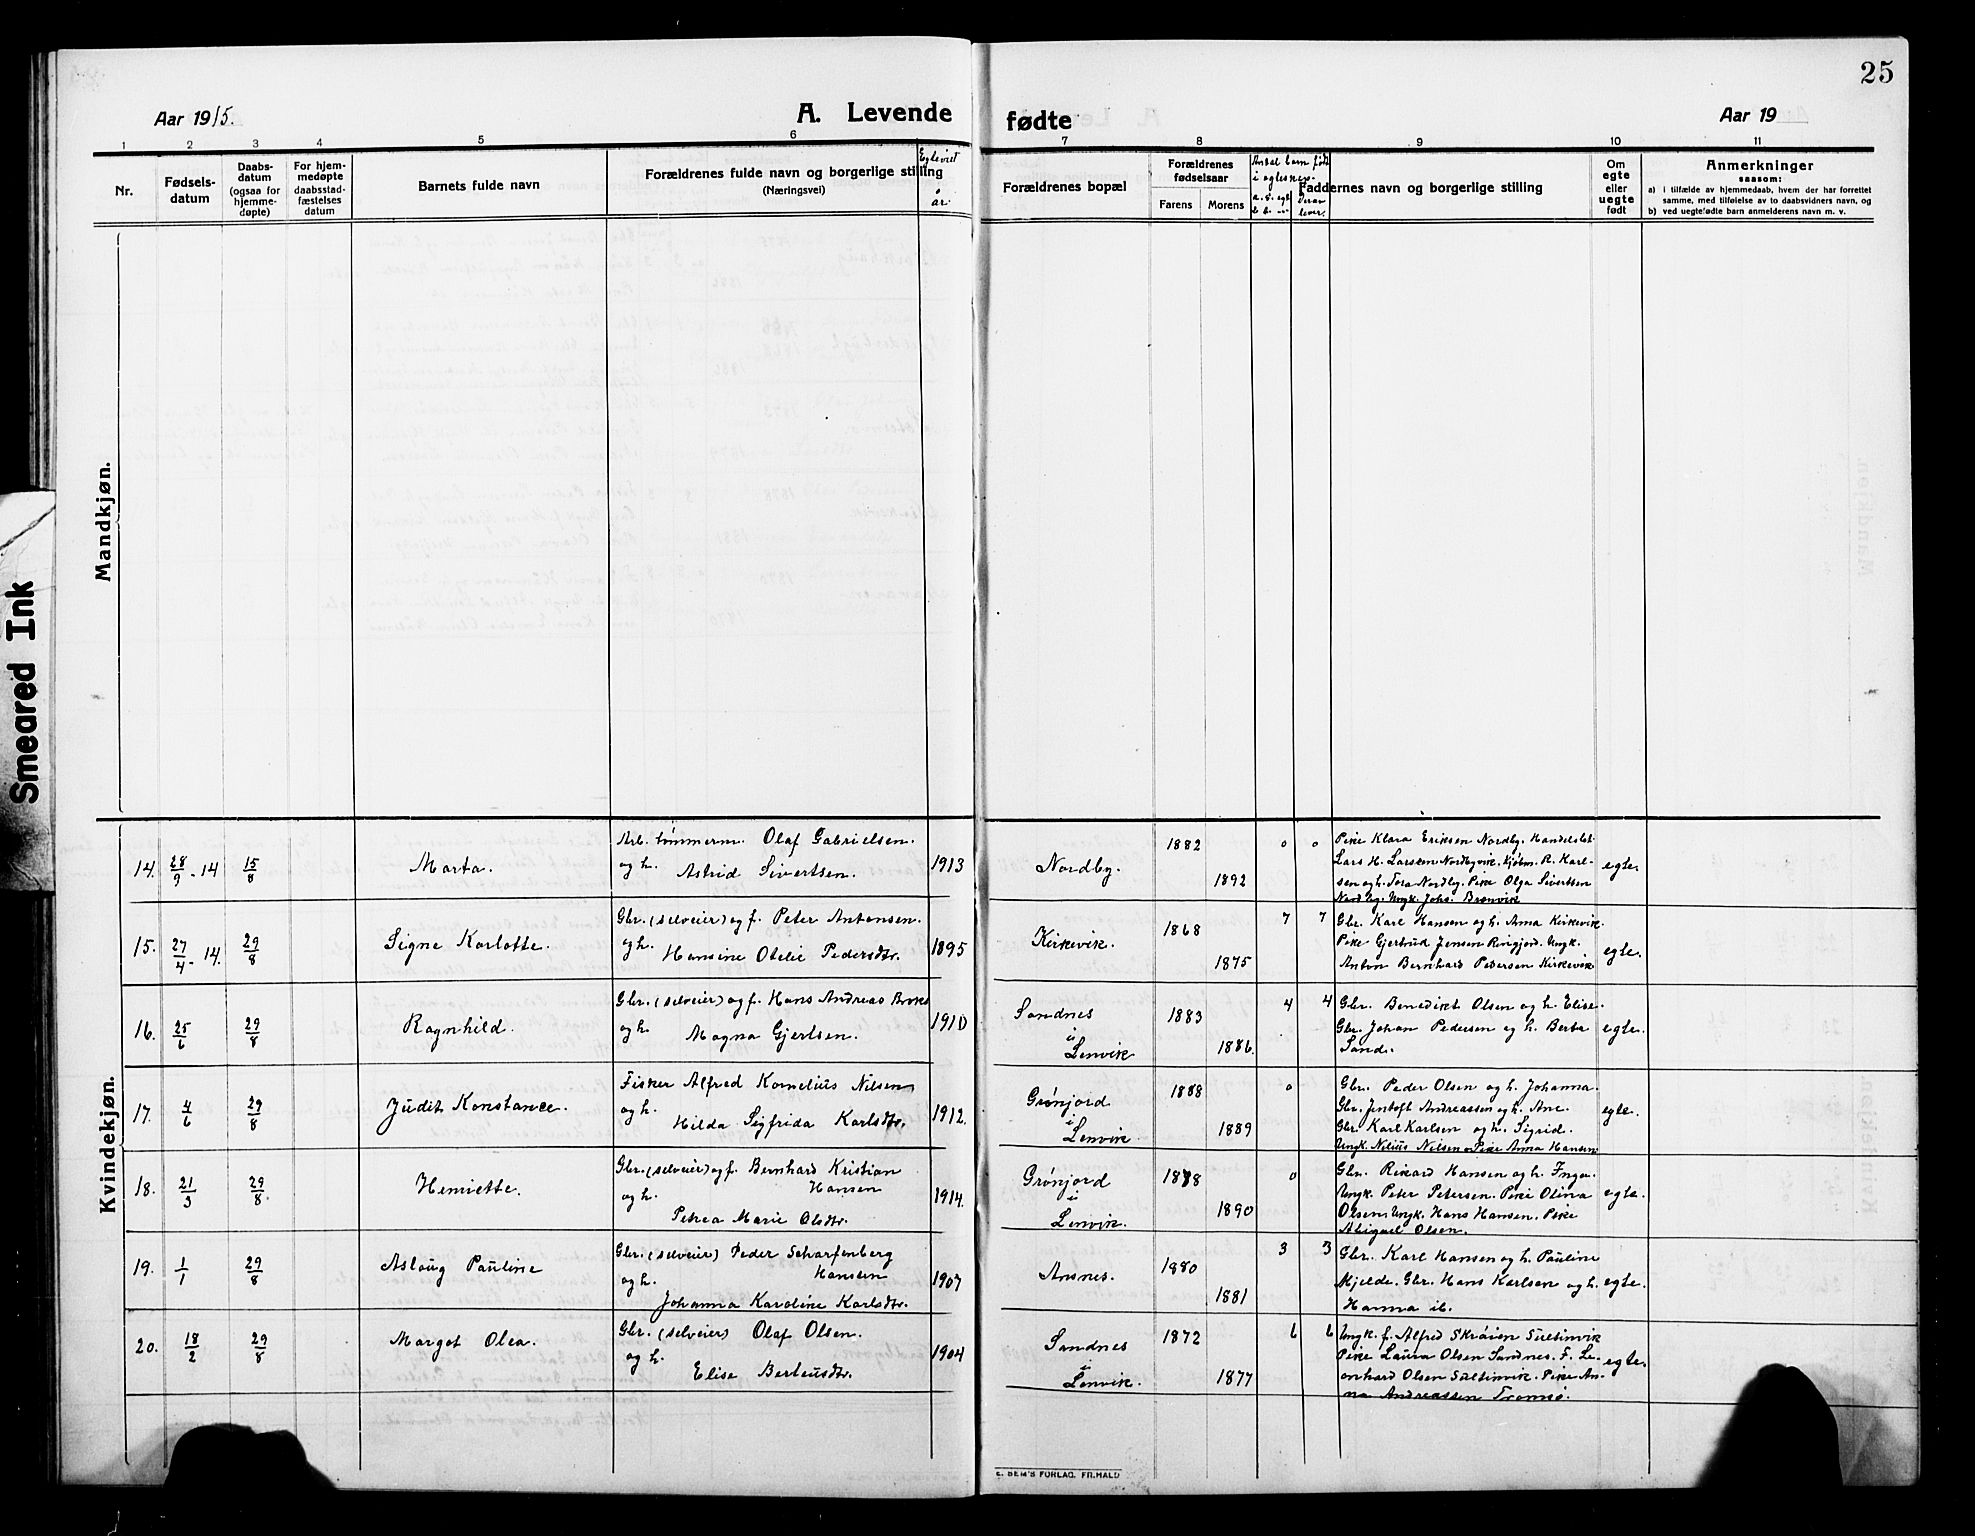 25
Aar 1915.
A. Levende
fødte
Aar 19
1 2 3 4 5 6 7 8 9 10 11
Nr.
Fødsels-
datum
Daabs-
datum
(ogsaa for
hjemme-
døpte)
For hjem-
medøpte
daabsstad-
fæstelses
datum
Barnets fulde navn
Forældrenes fulde navn og borgerlige stilling
(Næringsvei)
Egteviet
år.
Forældrenes bopæl
Forældrenes
fødselsaar
Farens
Morens
Antal barn født
i egtesk.
Derav
lever.
Faddernes navn og borgerlige stilling
Om
egte
eller
uegte
født
Anmerkninger
saasom:
a) i tilfælde av hjemmedaab, hvem der har forrettet
samme, med tilføielse av to daabsvidners navn, og
b) ved uegtefødte barn anmelderens navn m. v.
Mandkjøn.
Smeared Ink
Kvindekjøn.
14. 28/9 - 14 15/8 Marta.
Arb. tømmerm. Olaf Gabrielsen.
og h. Astrid Sivertsen. 1913
Nordby. 1882 1892 0 0
Pike Klara Eriksen Nordby. Handelsbet.
Lars H. Larsen Nordbyvik. Kjøbm. R. Karl-
sen og h. Tora Nordby. Pike Olga Sivertsen
Nordby. Ungk. Johs. Brenvik
egte.
15. 27/4 - 14. 29/8 Signe Karlotte.
Gbr. (selveier) og f. Peter Antonsen.
og h. Hansine Otelie Pedersdtr. 1895
Kirkevik. 1868 1875 7 7
Gbr. Karl Hansen og h. Anna Kirkevik.
Pike Gjertrud Jensen Rivgjord. Ungk.
Anton Bernhard Pedersen Kirkevik
egte.
16. 25/6 29/8 Ragnhild.
Gbr. (selveier) og f. Hans Andreas Broks
og h. Magna Gjertsen. 1910
Sandnes
i
Lenvik 1883 1886. 4 4
Gbr. Benedikt Olsen og h. Elise.
Gbr. Johan Pedersen og h. Berta
Sand.
egte.
17. 4/6 29/8 Judit Konstance.
Fisker Alfred Kornelius Nilsen
og h.
Hilda Sigfrida Karlsdtr. 1912.
Grønjord
i
Lenvik 1888 1889 0
Gbr. Peder Olsen og h. Johanna.
Gbr. Jentoft Andreassen og h. Ane.
Gbr. Karl Karlsen og h. Sigrid.
Ungk. Nilius Nilsen. Pike Anna Hansen
egte.
18. 21/3 29/8. Henriette.
Gbr. (selveier) og f. Bernhard Kristian
og h. Hansen
Petrea Marie Olsdtr. 1914.
Grønjord
i
Lenvik. 1888 1890 0
Gbr. Rikard Hansen og h. Inga.
Ungk. Peter Petersen. Pike Olina
Olsen. Ungk. Hans Hansen. Pike
Abigael Olsen.
egte.
19. 1/1 29/8 Aslaug Pauline
Gbr. (selveier) Peder Scharfenberg
og h. Hansen
Johanna Karoline Karlsdtr. 1907
Ansnes. 1880 1881 3 3
Gbr. Karl Hansen og h. Pauline
Mjelde. Gbr. Hans Karlsen og h.
Hanna ib.
egte.
20. 18/2 29/8 Margot Olea.
Gbr. (selveier) Olaf Olsen.
og h.
Elise Berteusdtr. 1904
Sandnes
i
Lenvik. 1872 1877 6 6
Ungk. f. Alfred Skråien Sultinvik
Pike Laura Olsen Sandnes. F. Le-
onhard Olsen Sultinvik. Pike An-
na Andreassen Tromsø.
egte.
E. SEM'S FORLAG, FR.HALD